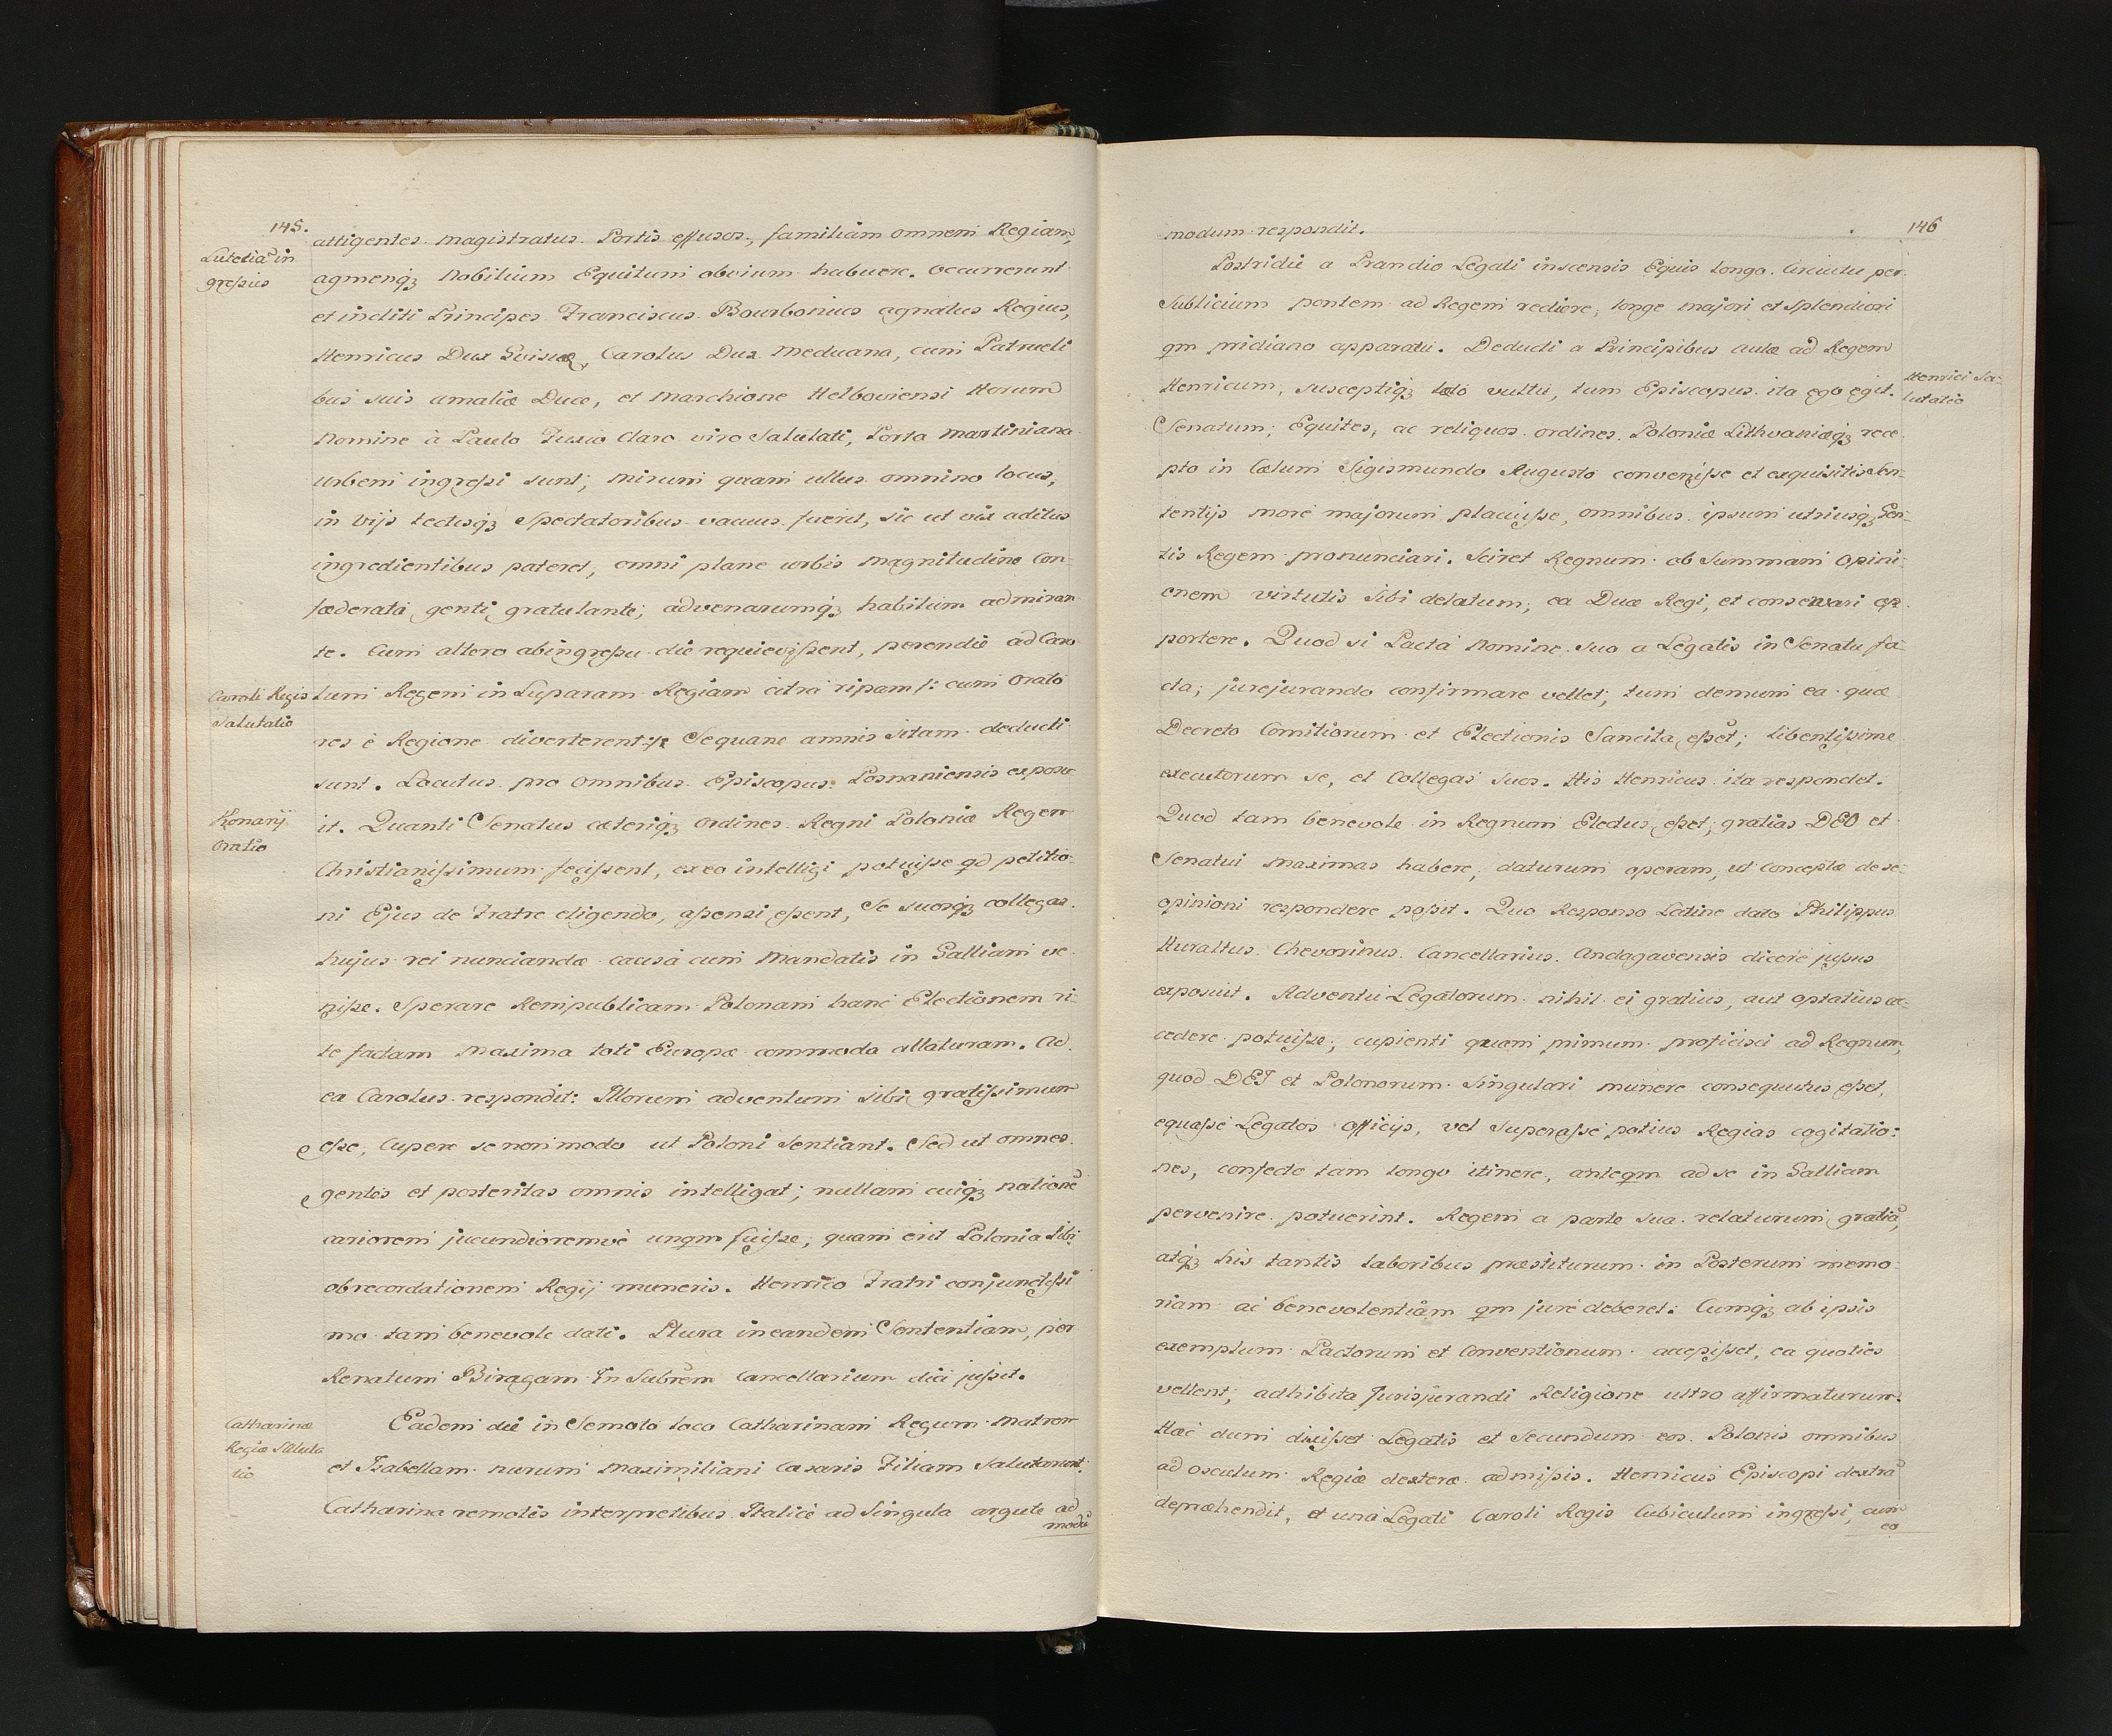 145.
Lutetiã in
greſsus
attigentes magistratus Portis effusos, familiam omnem Regiam,
agmenqȝ Nobilium Equitum obvium habuere. Occurrerunt
et incliti Principes Franciscus Bourbonius agnatus Regius,
Henricus Dux Guisiæ, Carolus Dux Meduana, cum Patrueli
bus suis Amaliæ Duce, et Marchione Helboviensi Horum
Nomine à Paulo Fuxio Claro viro Salutati, Porta Martiniana
urbem ingreſsi sunt; mirum quam ullus omnino locus,
in vijs tectisqȝ Spectatoribus vacuus fuerit, sic ut vix aditus
ingredientibus pateret, omni plane urbis magnitudine Con-
fæderata genti gratulante; advenarumqȝ habitum admiran
te. Cum altero ab ingreſsu die requieviſsent, perendie ad Caro
Caroli Regis
Salutatio
lum Regem in Luparam Regiam citra ripam /: cum Orato
res è Regione diverterent :/ Sequane amnis sitam deducti
sunt. Locutus pro omnibus Episcopus Posnaniensis exposu
Konarij
Oratio
it. Quanti Senatus cæteriqȝ Ordines Regni Poloniæ Regem
Christianiſsimum feciſsent, ex eo intelligi potuiſse qd petitio-
ni Ejus de Fratre eligendo, aſsensi eſsent, Se suosqȝ collegas
hujus rei nunciandæ causa cum Mandatis in Galliam ve
niſse. Sperare Rempublicam Polonam hanc Electionem ri-
te factam maxima toti Europæ commoda allaturam. Ad
ea Carolus respondit: Illorum adventum sibi gratiſsimum
eſse, Cupere se non modo ut Poloni Sentiant. Sed ut omnes
gentes et posteritas omnis intelligat; nullam cuiqȝ nationẽ
cariorem jucundioremve unqm fuiſse, quam erit Polonia Sibi
ob recordationem Regij muneris. Henrico Fratri conjunctiſsi
mo tam benevole dati. Plura in eandem Sententiam, per
Renatum Biragam In Subrem Cancellarium dici juſsit.
Catharinæ
Regiæ Saluta
tio
Eadem die in Semoto loco Catharinam Regum Matrem
et Isabellam nurum Maximiliani Cæsaris Filiam Salutarunt.
Catharina remotis interpretibus Italice ad Singula argute ad
modũ
146
modum respondit.
Postridie a Prandio Legati inscensis Equis longo Circuitu per
Sublicium pontem ad Regem rediere, longe majori et Splendiori
qm pridiano apparatu. Deducti a Principibus aulæ ad Regem
Henrici Sa-
lutatio
Henricum, susceptiqȝ læto vultu, tum Episcopus ita ego egit.
Senatum; Equites, ac reliquos ordines Poloniæ Lithvaniæqȝ rece
pto in Cælum Sigismundo Augusto conveniſse et exquisitis Sen-
tentijs more majorum placuiſse, omnibus ipsum utriusqȝ Gen-
tis Regem pronunciari. Sciret Regnum ob Summam Opini-
onem virtutis Sibi delatum; ea Duce Regi, et conservari op
portere. Quod si Pacta Nomine suo a Legatis in Senatu fa-
cta; jurejurando confirmare vellet; tum demum ea quæ
Decreto Comitiorum et Electionis Sancita eſset; libentiſsime
executorum se, et Collegas suos. His Henricus ita respondet.
Quod tam benevole in Regnum Electus eſset; gratias DEO et
Senatui maximas habere, daturum operam, ut conceptæ de se
opinioni respondere poſsit. Quo Responso Latine dato Philippus
Huraltus Chevorinus Cancellarius Andagavensis dicere juſsus
exposuit. Adventu Legatorum nihil ei gratius, aut optatius ac-
cedere potuiſse, cupienti quam primum proficisci ad Regnum,
quod DEI et Polonorum Singulari munere consequutus eſset,
equaſse Legatos officijs, vel Superaſse potius Regias cogitatio-
nes, confecto tam longo itinere, anteqm ad se in Galliam
pervenire potuerint. Regem a parte sua relaturum gratiã,
atqȝ his tantis laboribus præstiturum in Posterum memo-
riam ac benevolentiam qm jure deberet: Cumqȝ ab ipsis
exemplum Pactorum et Conventionum accepiſset, ea quoties
vellent; adhibita Jurisjurandi Religione ultro affirmaturum.
Hæc dum dixiſset Legatis et Secundum eos Polonis omnibus
ad osculum Regiæ dexteræ admiſsis. Henricus Episcopi dextrã
depræhendit, et una Legati Caroli Regis Cubiculum ingreſsi, cum
eo